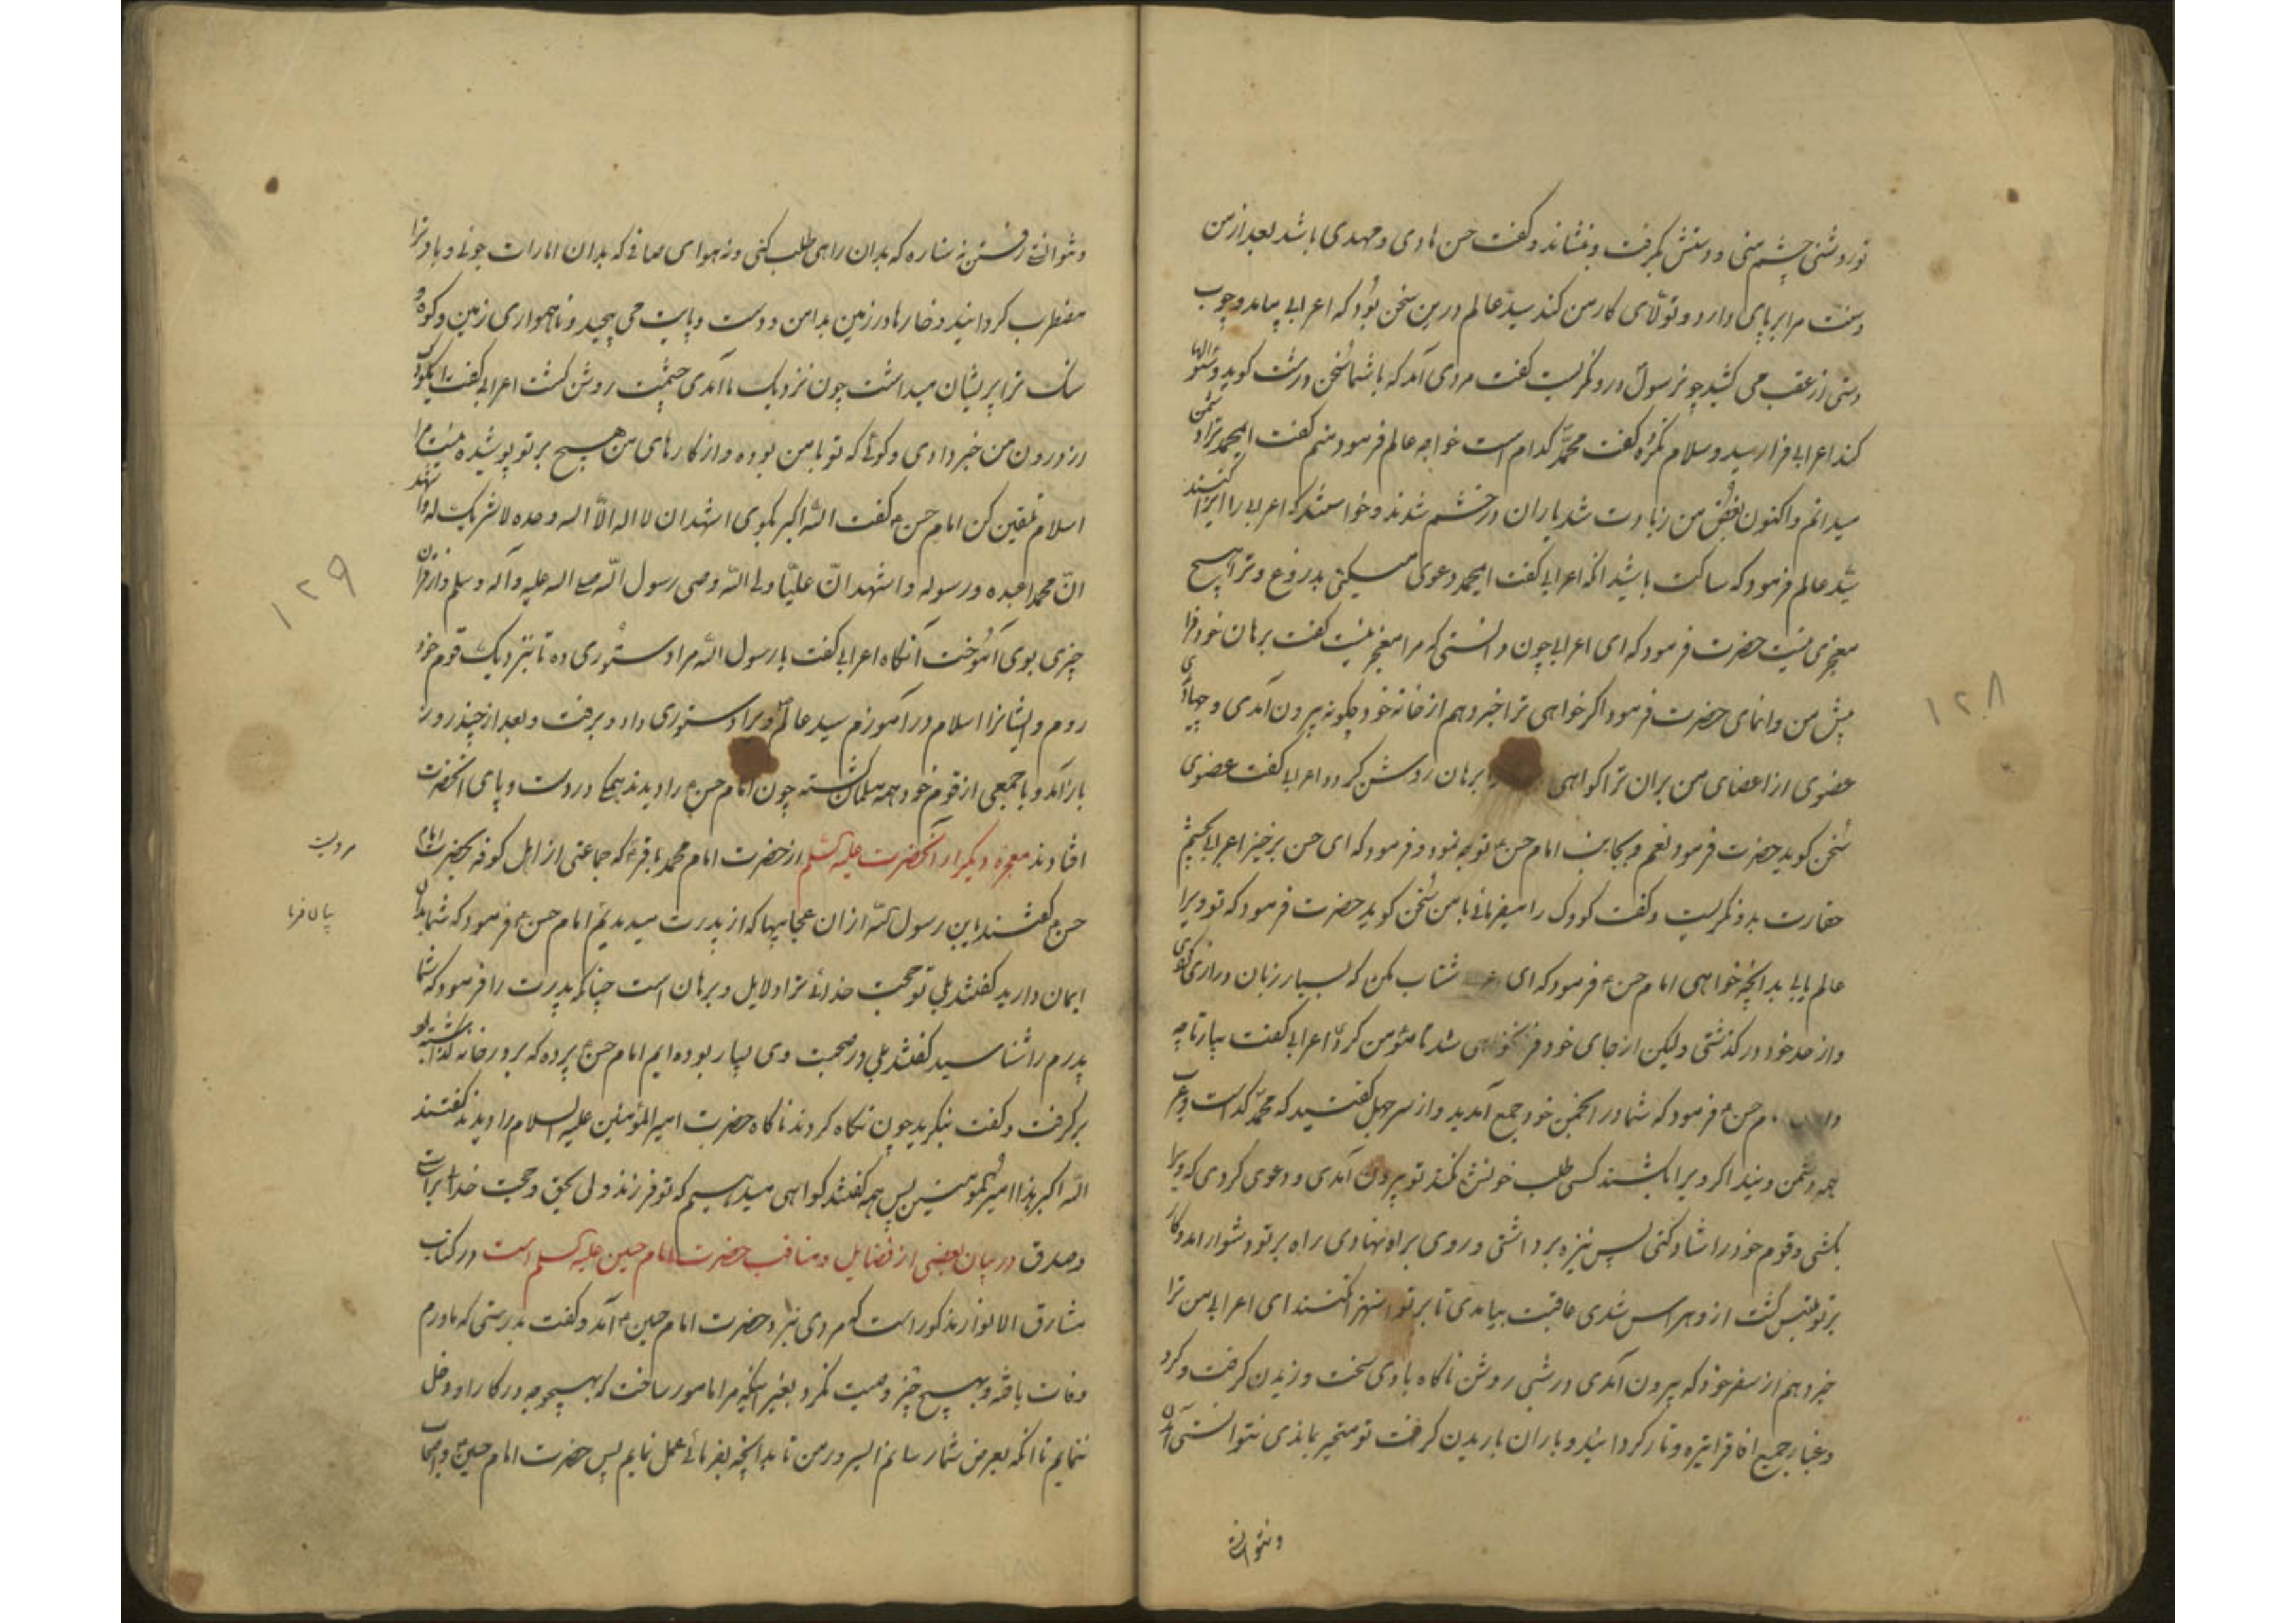 نور و شنی چشم منی و دستش بگرفت و بنشاند و گفت حسن هادی و مهدی باشد بعد از من
و سنت مرا برپای دارد و تولّای کار من کند سید عالم درین سخن بود که اعرابی بیامد و چوب
دستی از عقب می کشید چون رسول درو نگریست گفت مردی آمد که با شما سخن درشت گوید و سئوالها
کند اعرابی فراز رسید و سلام نکرد گفت محمد کدام است خواجه عالم فرمود منم گفت ای محمد ترا دشمن
میدانم و اکنون بغض من زیادت شد یاران در خشم شدند و خواستند که اعرابی را ایزا کنند
سید عالم فرمود که ساکت باشید انکه اعرابی گفت ای محمد دعوی میکنی بدروغ و ترا هیچ
معجزی نیست حضرت فرمود که ای اعرابی چون دانستی که مرا معجز نیست گفت برهان خود فرا
پیش من وانمای حضرت فرمود اگر خواهی ترا خبر دهم از خانه خود چگونه بیرون آمدی و
عضوی از اعضای من بران ترا گواهی برهان روشن گردد اعرابی گفت عضوی
سخن گوید حضرت فرمود نعم و بجانب امام حسن توجه نمود و فرمود که ای حسن برخیز اعرابی بچشم
حقارت بدو نگریست و گفت کودک را میفرمائی با من سخن گوید حضرت فرمود که تو ویرا
عالم یابی بدانچه خواهی امام حسن فرمود که ای شتاب مکن که بسیار زبان درازی کردی
و از حد خود در گذشتی ولیکن از جای خود شد تا مؤمن گردی اعرابی گفت بیار تا چه
حسن فرمود که شما در انجمن خود جمع آمدید و از سر جهل گفتید که محمد
همه دشمن ویند اگر ویرا بکشند کسی طلب خونش نکند تو بیرون آمدی و دعوی کردی که ویرا
بکشی و قوم خود را شاد کنی پس نیزه برداشتی و روی براه نهادی راه بر تو دشوار آمد و کار
بر تو ملتبس گشت از و هراس شدی عاقبت بیامدی تا بر تو کنند ای اعرابی من ترا
خبر دهم از سفر خود که بیرون آمدی در شبی روشن ناگاه بادی سخت وزیدن گرفت و گرد
و غبار جمیع افاق را تیره و تار گردانید و باران باریدن گرفت تو متحیر بماندی نتوانستی آمدن
و نتوانی
۱۲۸
و نتوانی رفتن نه ستاره که بدان راهی طلب کنی و نه هوای صافی که بدان امارات جوئی و باد ترا
مضطرب گردانید و خارها در زمین بدامن و دست و پایت می پیچید و ناهمواری زمین و کوه و
سنک ترا پریشان میداشت چون نزدیک ما آمدی چشمت روشن گشت اعرابی گفت ای کودک
از درون من خبر دادی و گوئی که تو با من بوده و از کارهای من هیچ بر تو پوشیده نیست مرا
اسلام تلقین کن امام حسن گفت اللّه اکبر بگوی اشهد ان لا اله الّا اللّه وحده لا شریک له و اشهد
انّ محمدا عبده و رسوله و اشهد انّ علیّا ولی اللّه وصی رسول اللّه صلی الله علیه و آله و سلم و از قرآن
چیزی بوی آموخت آنگاه اعرابی گفت یا رسول اللّه مرا دستوری ده تا بنزدیک قوم خود
روم و ایشانرا اسلام در آموزم سید عالم ویرا دستوری داد و برفت و بعد از چند روز
باز آمد و با جمعی از قوم خود همه مسلمان گشته چون امام حسن را دیدند همگی در دست و پای انحضرت
افتادند معجزه دیگر از آنحضرت علیه السلم از حضرت امام محمد باقر که جماعتی از اهل کوفه بحضرت امام
مرویست
حسن گفتند یابن رسول اللّه از ان عجایبها که از پدرت میدیدیم امام حسن فرمود که شما بدان
بیان فرما
ایمان دارید گفتند بلی تو حجت خدائی ترا دلایل و برهان است چنانکه پدرت را فرمود که شما
پدرم را شناسید گفتند بلی در صحبت وی بسیار بوده ایم امام حسن پرده که بر در خانه گذاشته بود
برگرفت و گفت بنگرید چون نگاه کردند ناگاه حضرت امیر المؤمنین علیه السلام را دیدند گفتند
اللّه اکبر هذا امیر المومنین پس همه گفتند گواهی میدهیم که تو فرزند ولی بحق و حجت خدا براست
و صدق در بیان بعضی از فضایل و مناقب حضرت امام حسین علیه السلم است در کتاب
مشارق الانوار مذکور است که مردی نزد حضرت امام حسین آمد و گفت بدرستی که مادرم
وفات یافته و بهیچ چیز وصیت نکرد بغیر اینکه مرا مامور ساخت که بهیچوجه در کار او دخل
ننمایم تا انکه بعرض شما رسانم ای سرور من تا بدانچه بفرمائی عمل نمایم پس حضرت امام حسین و اصحاب
۱۲۹